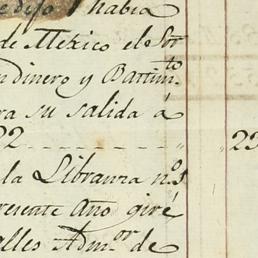 edijo habia
de Mexico el Sor
n dinero y Bastimto
ra su salida á
22 23
la Libranza n.o 5
resente Año giré
alles Admor de